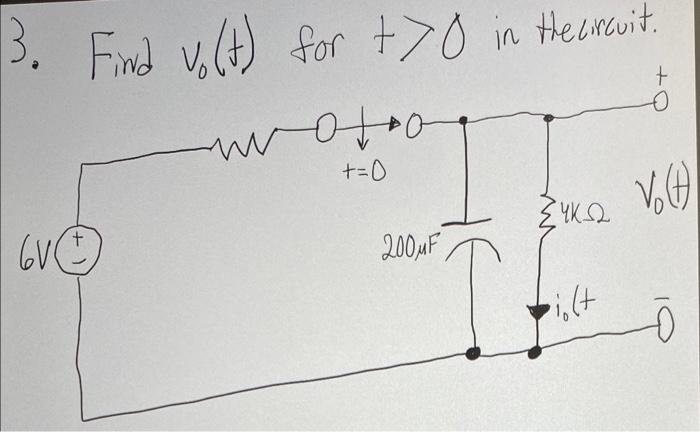 3. Find v₀(t) for t>0 in the circuit.
+
t=0
6V
+
-
200μF
4KΩ
V₀(t)
i₀(t
-